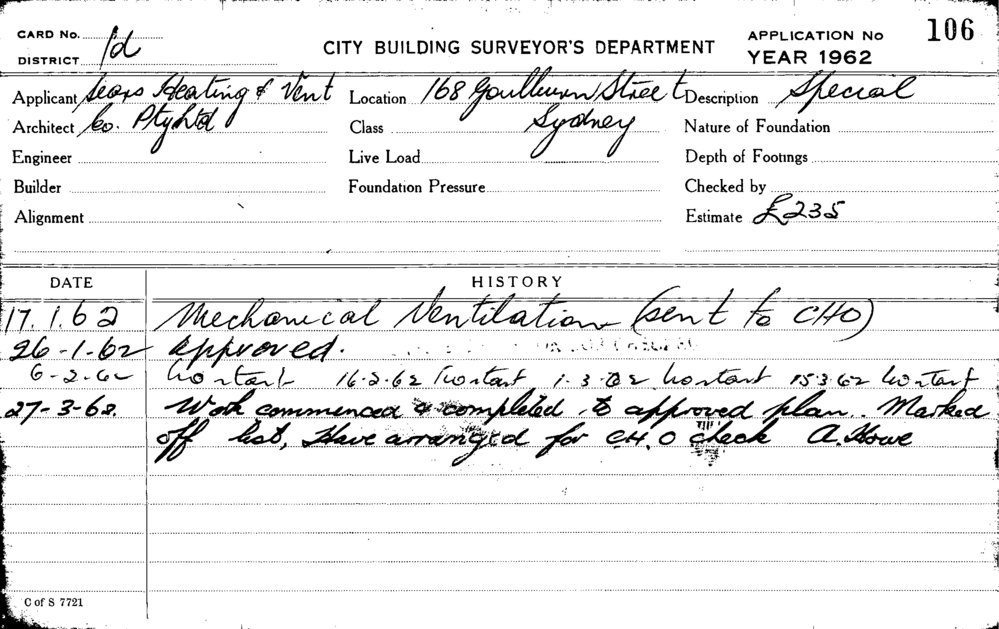 CARD No.
DISTRICT 1d
CITY BUILDING SURVEYOR'S DEPARTMENT
APPLICATION No 106
YEAR 1962
Applicant Sears Heating & Vent Location 168 Goulburn Street Description Special
Architect Co. Pty Ltd Class Sydney Nature of Foundation
Engineer Live Load Depth of Footings
Builder Foundation Pressure Checked by
Alignment Estimate £235
DATE HISTORY
17.1.62 Mechanical Ventilation (sent to CHO)
26-1-62 Approved.
6-2-62 No start 16-2-62 No start 1-3-62 No start 15.3.62 No start
27-3-62. Work commenced & completed to approved plan. Marked
off list, Have arranged for C.H.O check A. Howe
C of S 7721